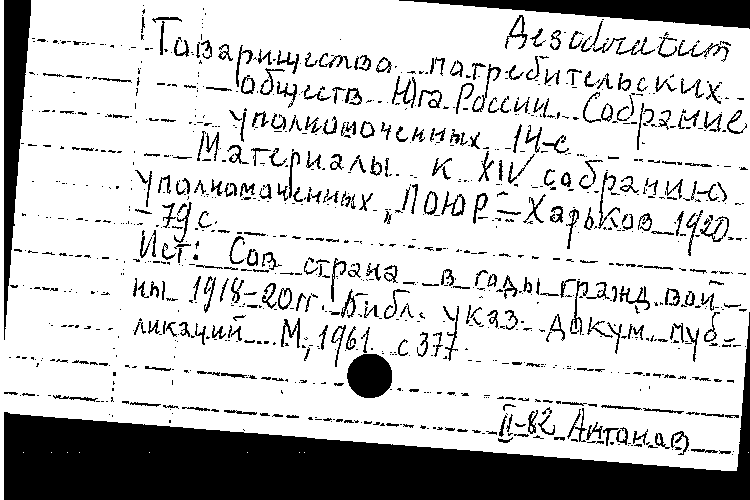 Desideratum
Товарищество потребительских
обществ Юга России. Собрание
уполномоченных 14-е
Материалы к XIV собранию
уполномоченных „ПОЮР" = Харьков 1920
- 79 с
Ист: Сов страна в годы гражд вой-
ны 1918-20 гг. Библ. указ. докум. пуб-
ликаций М, 1961 с 377
II-82 Антонов